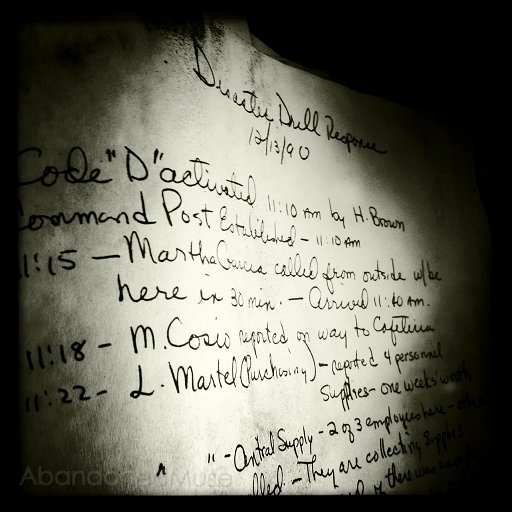 Disaster Drill Response
12/13/90
Code "D" activated 11:10 AM by H. Brown
Command Post Established - 11:10 AM.
11:15 - Martha called from outside w/be
here in 30 min. - Arrived 11:40 AM.
11:18 - M. Cosio reported on way to Cafeteria
11:22 - L. Martel (Purchasing) - reported 4 personnel
Supplies - one weeks' worth
" - Central Supply - 2 of 3 employees here -
- They are collecting supplies
there was
Abandoned Muse